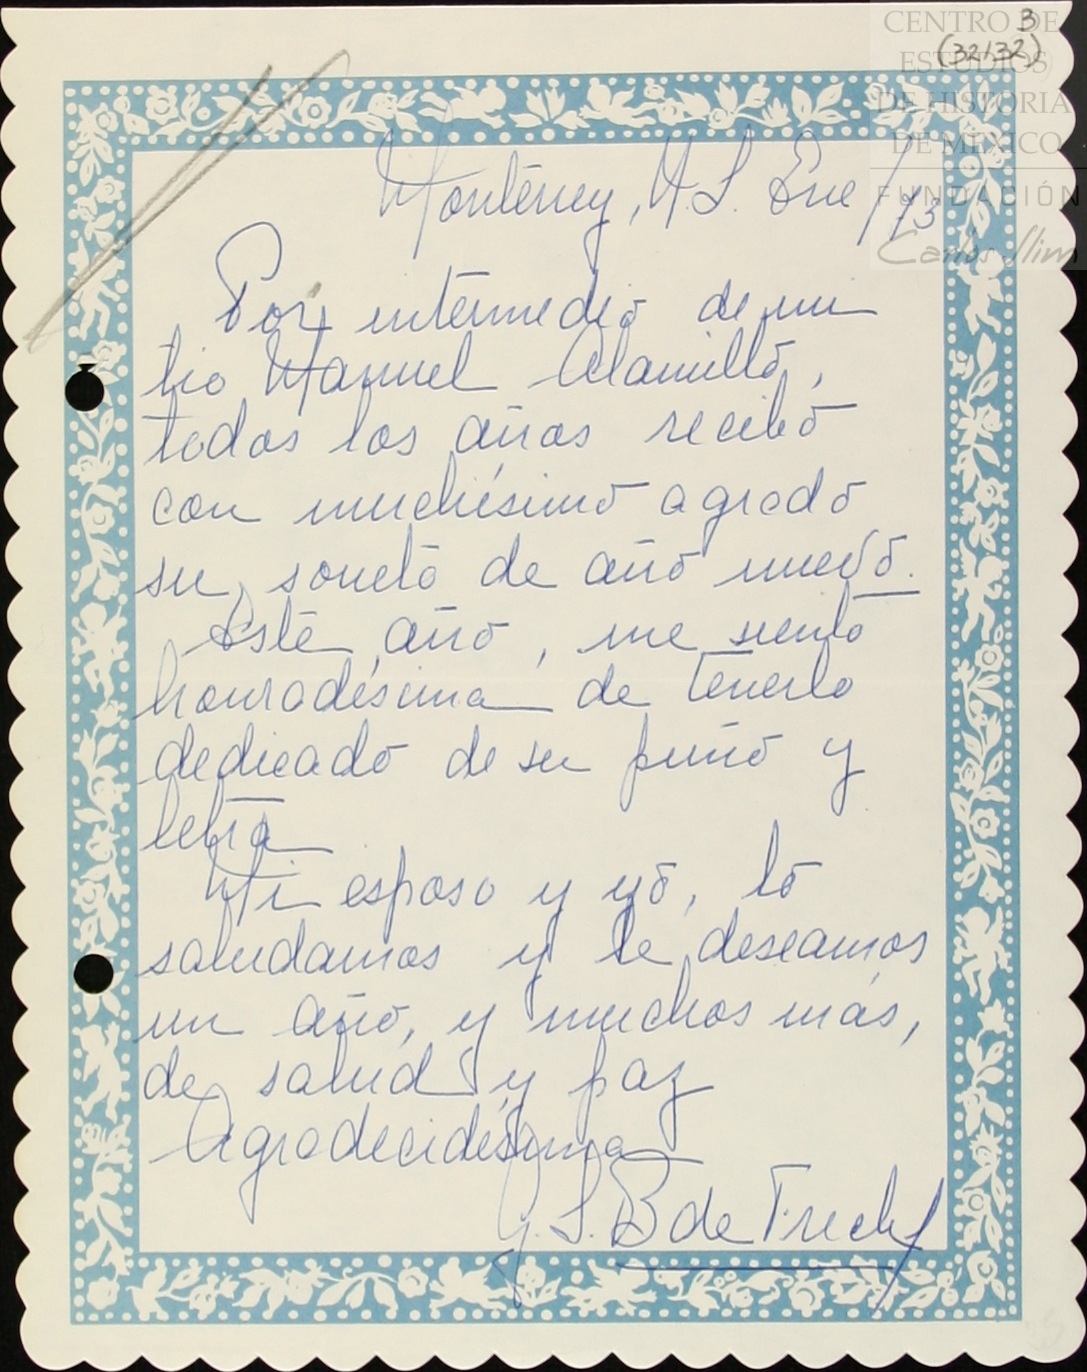 3
(32132)
CENTRO DE
ESTUDIOS
DE HISTORIA
DE MÉXICO
FUNDACIÓN
Carlos Slim
Monterrey, N.L. Ene/73
Por intermedio de mi
tio Manuel Alamillo,
todos los años recibo
con muchísimo agrado
su soneto de año nuevo.
Este año, me siento
honradísima de tenerlo
dedicado de su puño y
letra
Mi esposo y yo, lo
saludamos y le deseamos
un año, y muchos más,
de salud y paz
Agradecidísima
B de